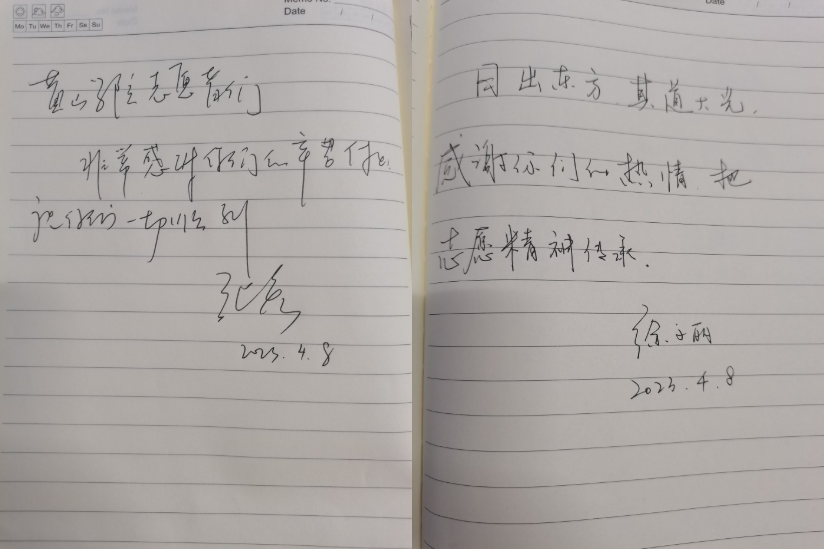 Memo No.
Date / /
Mo Tu We Th Fr Sa Su
黄山学院志愿者们
非常感谢你们的辛苦付出.
祝你们一切顺利
2023.4.8
Date / /
日出东方 其道大光.
感谢你们的热情 把
志愿精神传承.
徐文丽
2023.4.8